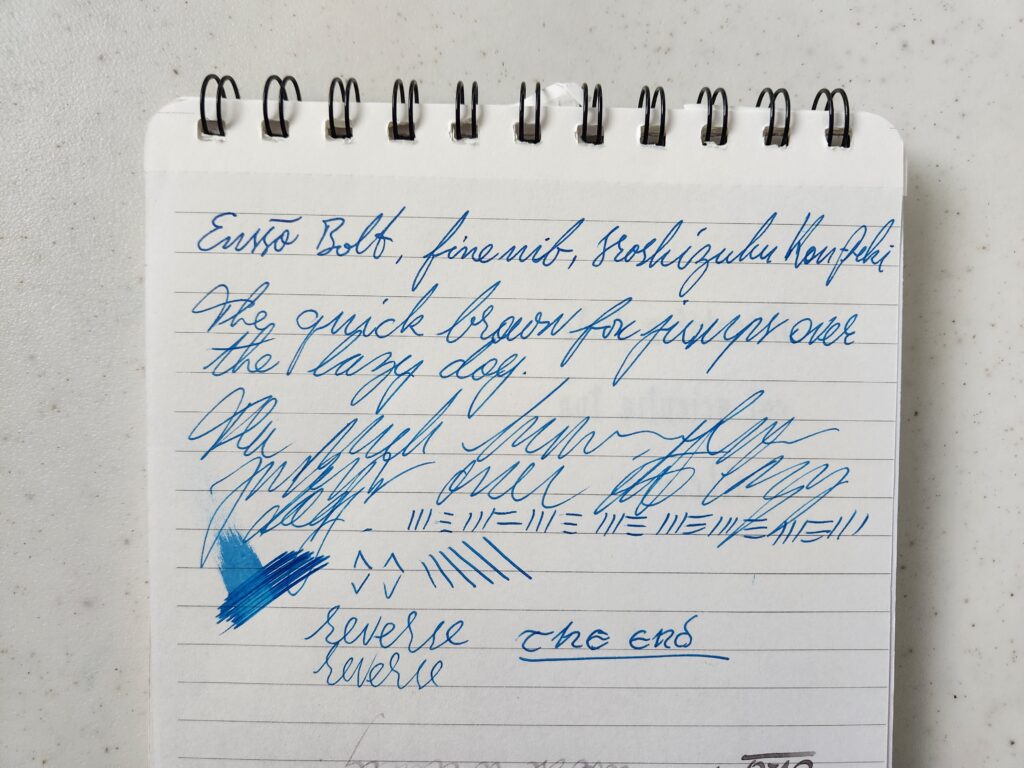 Enssō Bolt, fine nib, Iroshizuku Kon-Peki
The quick brown fox jumps over
the lazy dog.
The quick brown fox
jumps over the lazy
dog.
reverse The END
reverse